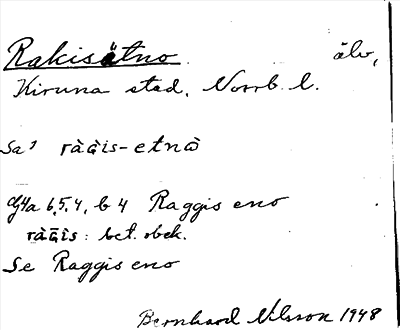 Rakisätno älv,
Kiruna stad, Norrb. l.
Sa³ ràģìs-etnò
G4a 6,5,4, b 4 Raggis eno
ràģìs: bet. obek.
Se Raggis eno
Bernhard Nilsson 1948